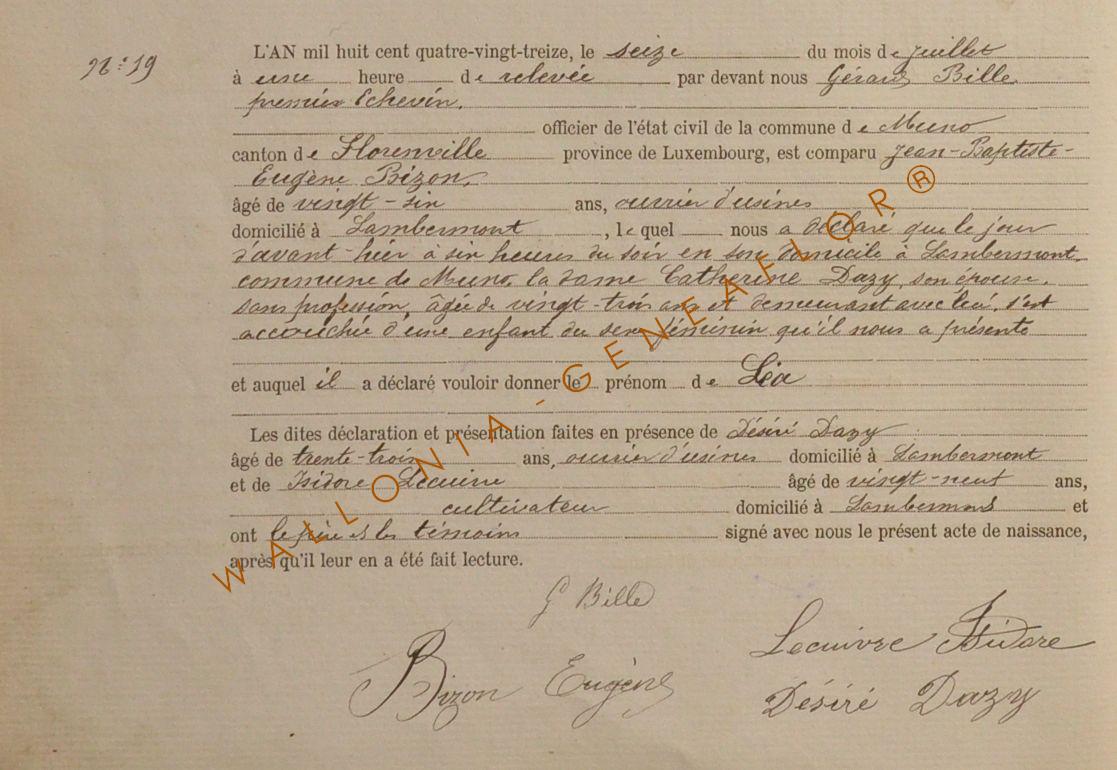 N.° 19
L'AN mil huit cent quatre-vingt-treize, le seize du mois de juillet
à une heure de relevée par devant nous Gérard Bille
premier Echevin,
officier de l'état civil de la commune de Muno
canton de Florenville province de Luxembourg, est comparu Jean-Baptiste-
Eugène Bizon,
âgé de vingt-six ans, ouvrier d'usines
domicilié à Lambermont, lequel nous a déclaré que le jour
d'avant-hier à six heures du soir en son domicile à Lambermont,
commune de Muno, la dame Catherine Dazy, son épouse,
sans profession, âgée de vingt-trois ans et demeurant avec lui, s'est
accouchée d'une enfant du sexe féminin qu'il nous a présenté
et auquel il a déclaré vouloir donner le prénom de Léa
Les dites déclaration et présentation faites en présence de Désiré Dazy
âgé de trente-trois ans, ouvrier d'usines domicilié à Lambermont
et de Isidore Lecuivre âgé de vingt-neuf ans,
cultivateur domicilié à Lambermont et
ont le père et les témoins signé avec nous le présent acte de naissance,
après qu'il leur en a été fait lecture.
G Bille
Lecuivre Isidore
Bizon Eugène
Désiré Dazy
WALLONIA-GENEAFLOR®